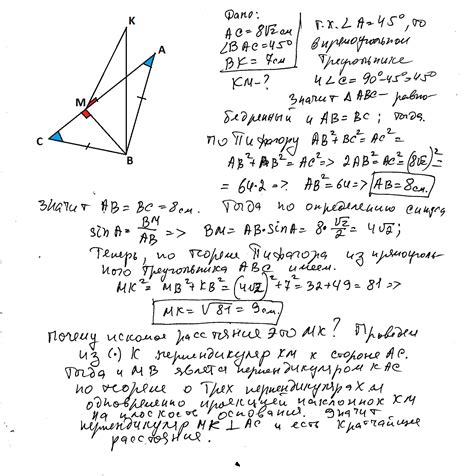 K
A
M
C
B
Дано:
AC = 8√2 см
∠BAC = 45°
BK = 7 см
KM - ?
т.к. ∠A = 45°, то
в прямоугольном
треугольнике
и ∠C = 90°-45°=45°
Значит △ABC - равно-
бедренный и AB = BC; тогда
по Пифагору AB² + BC² = AC² =
AB² + AB² = AC² => 2AB² = AC² = (8√2)² =
= 64·2 => AB² = 64 => AB = 8 см.
Значит AB = BC = 8 см. Тогда по определению синуса
sin A = BM/AB => BM = AB·sin A = 8·√2/2 = 4√2;
Теперь, по теореме Пифагора из прямоуголь-
ного треугольника ABC имеем.
MK² = MB² + KB² = (4√2)² + 7² = 32 + 49 = 81 =>
MK = √81 = 9 см.
Почему искомое расстояние это MK? Проведем
из (·) K перпендикуляр KM к стороне AC.
Тогда и MB явлется перпендикуляром к AC
по теореме о трех перпендикулярах и
одновременно проекцией наклонной KM
на плоскость основания. Значит
перпендикуляр MK ⊥ AC и есть кратчайшее
расстояние.